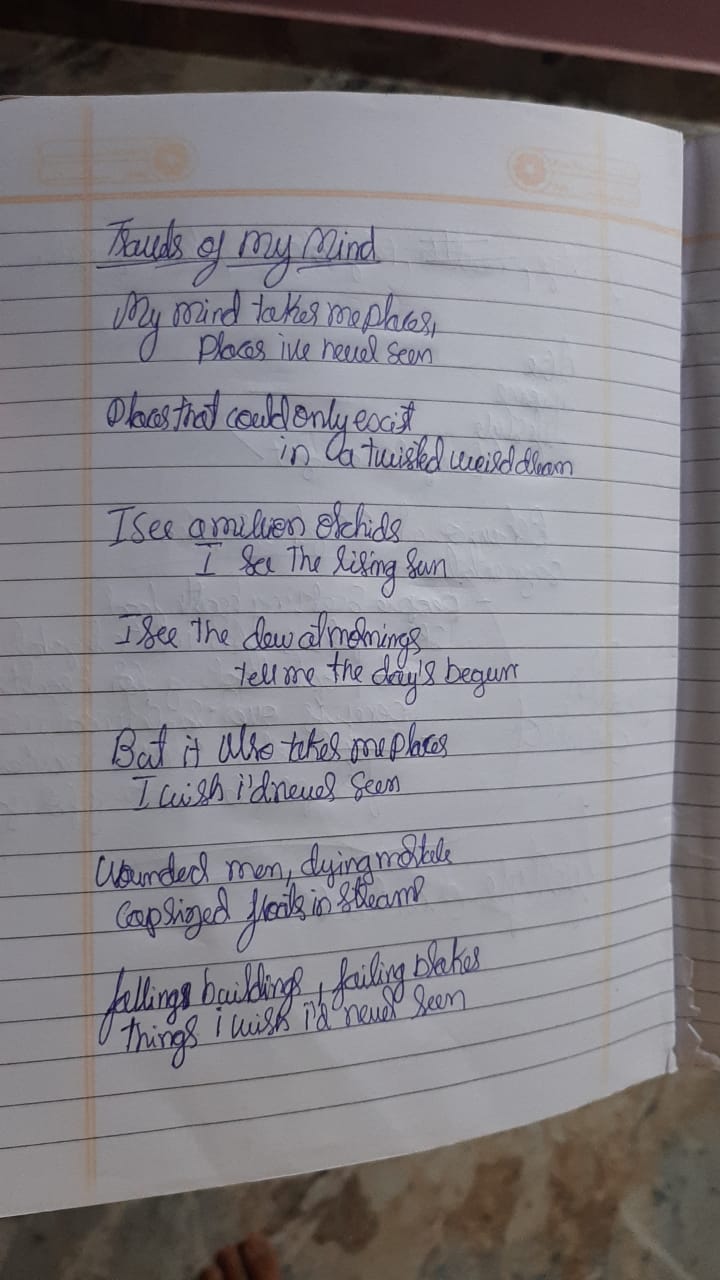 Frauds of my Mind
My mind takes me places,
Places ive never seen
Places that could only exist
in a twisted weird dream
I see a million orchids
I see The rising sun
I see the dew at mornings
tell me the day's begun
But it also takes me places
I wish i'd never seen
Wounded men, dying
Capsized floats in streams
fallings buildings, failing brakes
things i wish i'd never seen